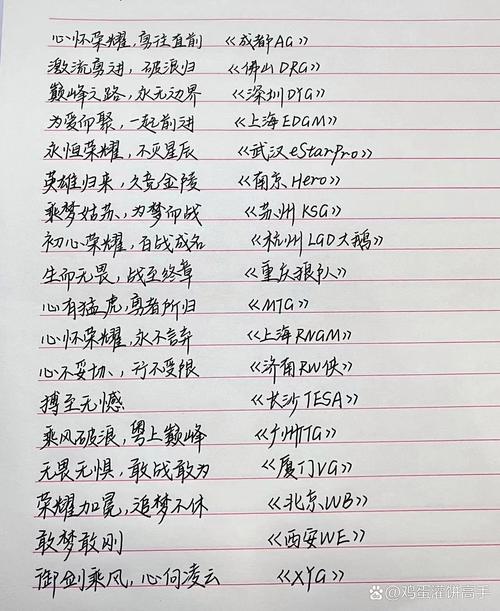 心怀荣耀,勇往直前 《成都AG》
激流勇进,破浪归 《佛山DRG》
巅峰之路,永无边界 《深圳DYG》
为爱而聚,一起前进 《上海EDGM》
永恒荣耀,不灭星辰 《武汉eStarPro》
英雄归来,久竞金陵 《南京Hero》
乘梦姑苏、为梦而战 《苏州KSG》
初心荣耀,百战成名 《杭州LGD大鹅》
生而无畏,战至终章 《重庆狼队》
心有猛虎,勇者所归 《MTG》
心怀荣耀,永不言弃 《上海RNGM》
心不妥切、,行不受限 《济南RW侠》
搏至无憾 《长沙TESA》
乘风破浪,粤上巅峰 《广州TTG》
无畏无惧,敢战敢为 《厦门VG》
荣耀加冕,追梦不休 《北京WB》
敢梦敢刚 《西安WE》
御剑乘风,心向凌云 《XYG》
@鸡蛋灌饼高手